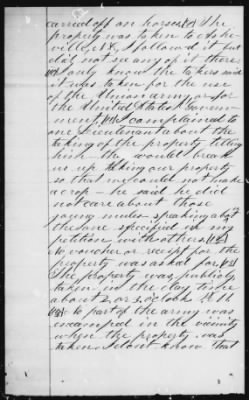 carried off on horses. The
property was taken to Ashe-
ville, N.C. I followed it but
did not see any of it there
I only know the takers and
it was taken for the use
of the Union army or for
the United States Govern-
ment. I complained to
one Lieutenant about the
taking of the property telling
him they would break
us up taking our property
so that we could not make
a crop — he said he did
not care about those
young mules speaking about
the same specified in my
petition with others.
No voucher or receipt for the
property was asked for
The property was publicly
taken in the day time
about 2 or 3 o'clock P.M.
No part of the army was
encamped in the vicinity
when the property was
taken. I don't know that